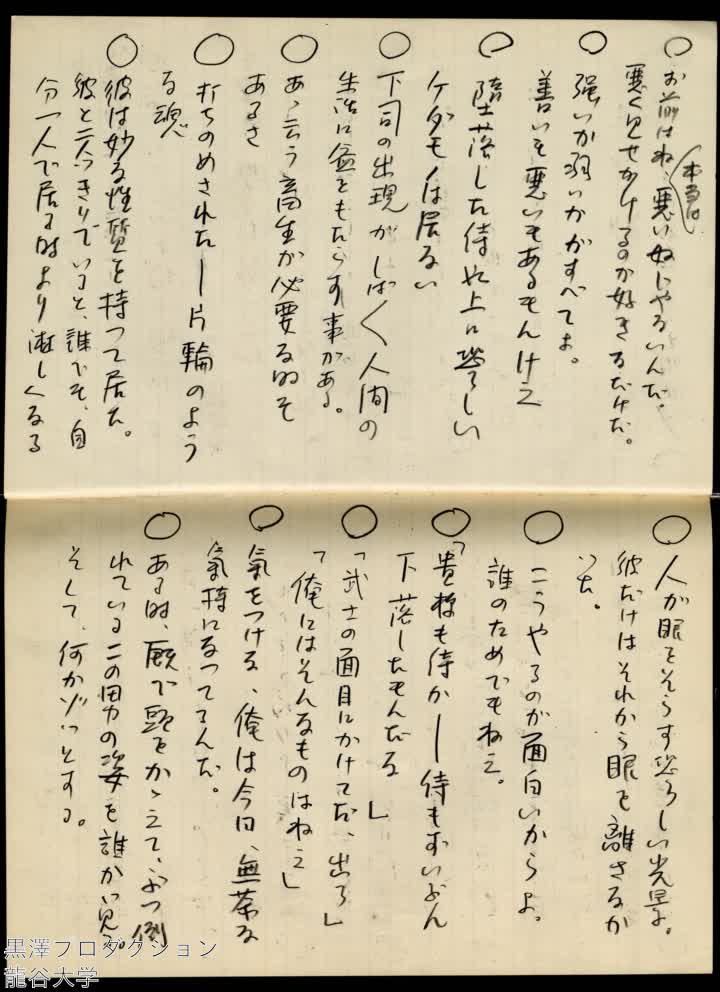 ○お前はね、本当は、悪い奴じゃないんだ。
悪く見せかけるのが好きなだけだ。
○強いか弱いかがすべてよ。
善いも悪いもあるもんけえ
○堕落した侍以上に恐ろしい
ケダモノは居ない
○下司の出現がしばく人間の
生活に益をもたらす事がある。
○あゝ云う畜生が必要なのも
あるさ
○打ちのめされた―片輪のよう
な魂
○彼は妙な性質を持って居た。
彼と二人きりでいると、誰でも、自
分一人で居る時より淋しくなる
○人が眼をそらす恐ろしい光景。
彼だけはそれから眼を離さなか
った。
○こうやるのが面白いからよ。
誰のためでもねえ。
○「貴様も侍か―侍もずいぶん
下落したもんだな」
○「武士の面目にかけてだ、出ろ」
「俺にはそんなものはねえ」
○気をつけろ、俺は今日、無茶な
気持になってるんだ。
○ある時、厩で頭をかゝえて、ぶっ倒
れているこの男の姿を誰かゞ見る。
そして、何かゾッとする。
黒澤プロダクション
龍谷大学